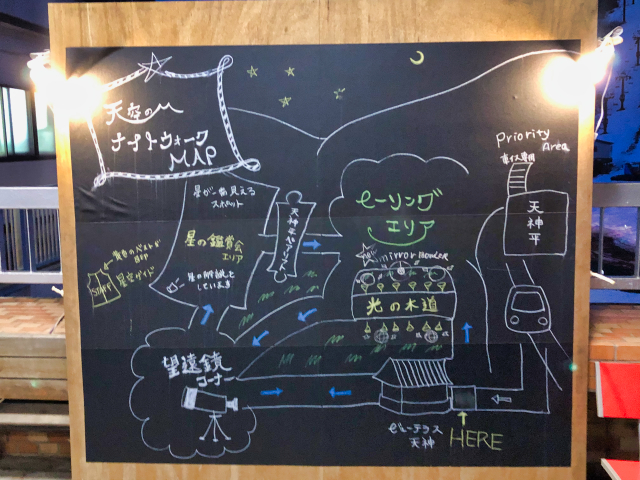 天空の
ナイトウォーク
MAP
Priority
Area
車イス専用
天神平
星が一番見える
スポット
天神平ゲレンデ
ヒーリング
エリア
星の鑑賞会
エリア
星の解説を
しています
黄色のベストが
目印
STAFF
星空ガイド
mirror Wonder
光の木道
望遠鏡
コーナー
ビューテラス
天神
HERE